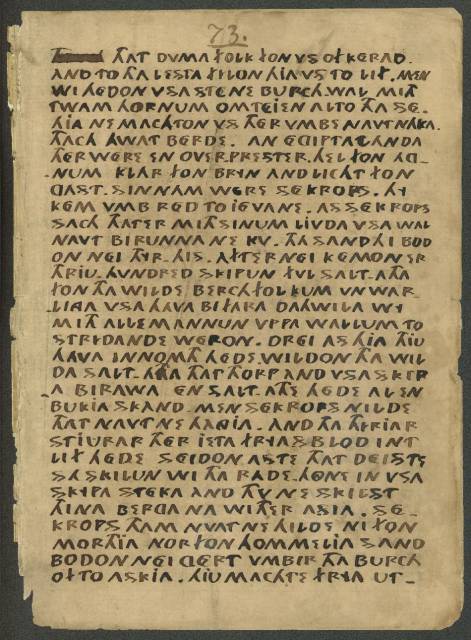 73.
THAT DVMA FOLK FON VS OF KERAD.
AND TO THA LESTA FILON HIA VS TO LIF. MEN
WI HEDON VSA STENE BURCHWAL MITH
TWAM HORNUM OMTEIEN AL TO THA SE.
HIA NE MACHTON VS THERVMBE NAVT NAKA.
THACH HWAT BERDE. AN EGIPTALANDA
THER WERE EN OVERPRESTER. HEL FON AG_
NUM KLAR FON BRYN AND LICHT FON
GAST. SIN NAM WERE SEKROPS. HY
KEM VMB RED TO IEVANE. AS SEKROPS
SACH THAT ER MITH SINUM LIVDA VSA WAL
NAVT BIRUNNA NE KV. THA SAND HI BOD
ON NEI THYRHIS. AFTERNEI KEMON ER
THRIU HUNDRED SKIPUN FVL SALTATHA
FON THA WILDE BERCHFOLKUM VNWAR_
LINGA VSA HAVA BIFARA DAHWILA WY
MITH ALLE MANNUN VPPA WALLUM TO
STRIDANDE WERON. DREI AS HIA THIU
HAVA INNOMTH HEDE WILDON THA WIL
DA SALT_ATHA THAT THORP AND VSA SKIP
A BIRAWA EN SALT_ATHE HEDE AL EN
BUKIA SKAND. MEN SEKROPS NILDE
THAT NAVT NE HANGIA. AND THA THYRIAR
STIURAR THER IETA FRYAS BLOD INT
LIF HEDE SEIDON ASTE THAT DEISTE
SA SKILUN WI THA RADE HONE IN VSA
SKYPA STEKA AND THV NE SKILST
THINA BERGA NA WITHER ASIA. SE_
KROPS THAM NVAT NE HILDE NI FON
MORTHIA NOR FON HOMMELIA SAND
BODON NEI GERT VMBIR THA BURCH
OF TO ASKIA. HIU MACHTE FRYA UT_